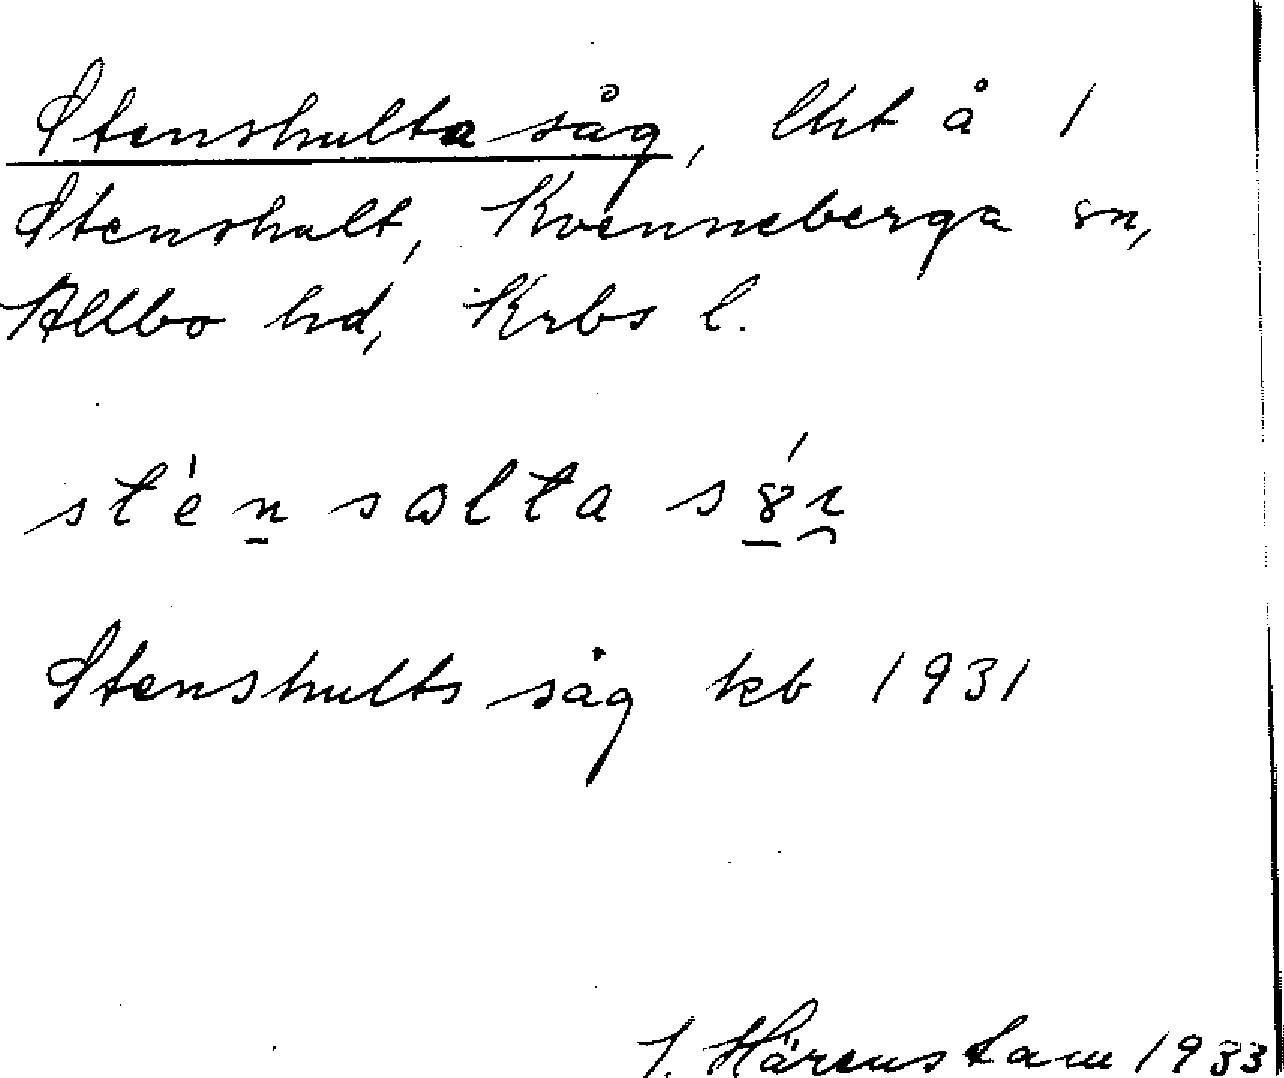 Stenshulta såg, lht å 1
Stenshult, Kvenneberga sn,
Allbo hd, Krbs l.
Stenshults såg kb 1931
J. Härenstam 1933